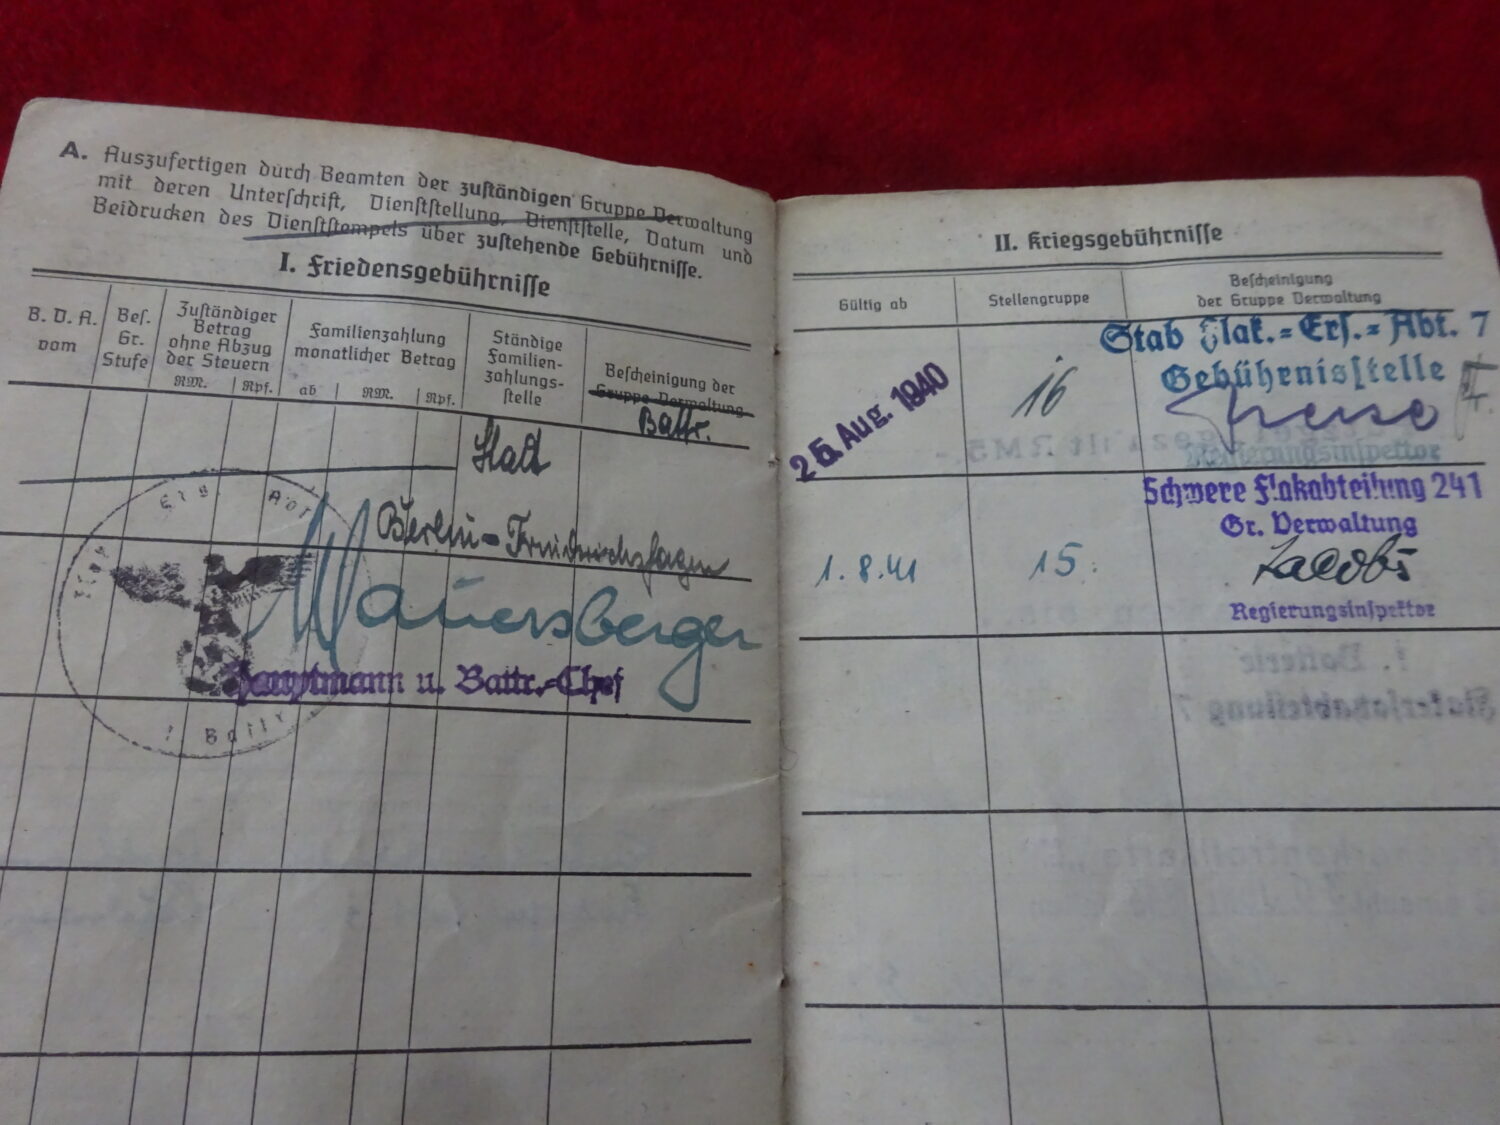 A. Auszufertigen durch Beamten der zuständigen Gruppe Verwaltung
mit deren Unterschrift, Dienststellung, Dienststelle, Datum und
Beidrucken des Dienststempels über zustehende Gebührnisse.
I. Friedensgebührnisse
B. D. A.
vom
Bes.
Gr.
Stufe
Zuständiger
Betrag
ohne Abzug
der Steuern
RM.
Rpf.
Familienzahlung
monatlicher Betrag
ab
RM.
Rpf.
Ständige
Familien-
zahlungs-
stelle
Bescheinigung der
Gruppe Verwaltung
Battr.
Stadt
Berlin-Friedrichshagen
Mauersberger
Hauptmann u. Battr.-Chef
Battr.
II. Kriegsgebührnisse
Gültig ab
Stellengruppe
Bescheinigung
der Gruppe Verwaltung
Stab Flak.=Ers.=Abt. 7
Gebührnisstelle
26. Aug. 1940
16
Regierungsinspektor
Schwere Flakabteilung 241
Gr. Verwaltung
1. 8. 41
15.
Jacobs
Regierungsinspektor